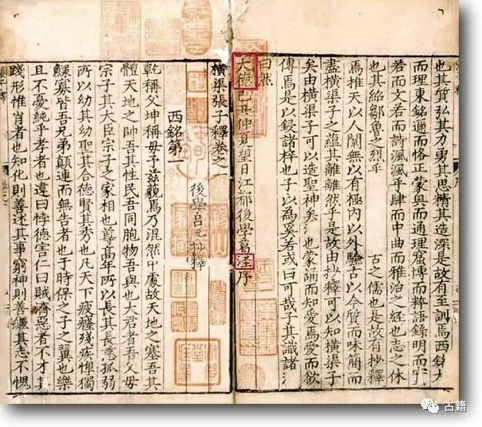 也其質弘其力勇其思精其造深是故有至訓焉西銘
而理東銘通而恪正蒙奧而通理窟博而粹語錄明而
若而文若而詩渢渢乎肆而中曲而雅治之經也志之休
也其紹鄒魯之烈乎 古之儒也是故有抄釋
焉推天以人闢無以有極內以外驗古以今質而味簡而
盡橫渠子之蘊其離離然乎是故由抄釋可以知橫渠子
矣由橫渠子可以造聖神矣 也蒙誦而知愛焉愛而欲
傳焉是以鋟諸梓也予以為奚若或曰可哉予其識諸
曰然
大德 仲夏望日江都後學葛 序
橫渠張子釋卷之一
後學呂 抄釋
西銘第一
乾稱父坤稱母予茲藐焉乃混然中處故天地之塞吾其
體天地之帥吾其性民吾同胞物吾與也大君者吾父母
宗子其大臣宗子之家相也尊高年所以長其長慈孤弱
所以幼其幼聖其合德賢其秀也凡天下疲癃殘疾惸獨
鰥寡皆吾兄弟顛連而無告者也于時保之子之翼也樂
且不憂純乎孝者也違曰悖德害仁曰賊濟惡者不才其
踐形惟肖者也知化則善述其事窮神則善繼其志不愧
古籍